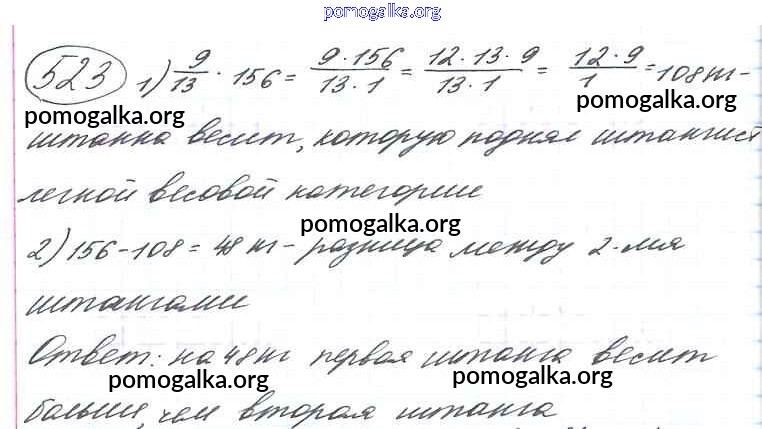 pomogalka.org
523 1) 9/13 · 156 = 9·156/13·1 = 12·13·9/13·1 = 12·9/1 = 108 кг -
pomogalka.org pomogalka.org
штанга весит, которую поднял штангист
легкой весовой категории
pomogalka.org
2) 156 - 108 = 48 кг - разница между 2-мя
штангами
Ответ: на 48 кг первая штанга весит
pomogalka.org pomogalka.org
больше, чем вторая штанга